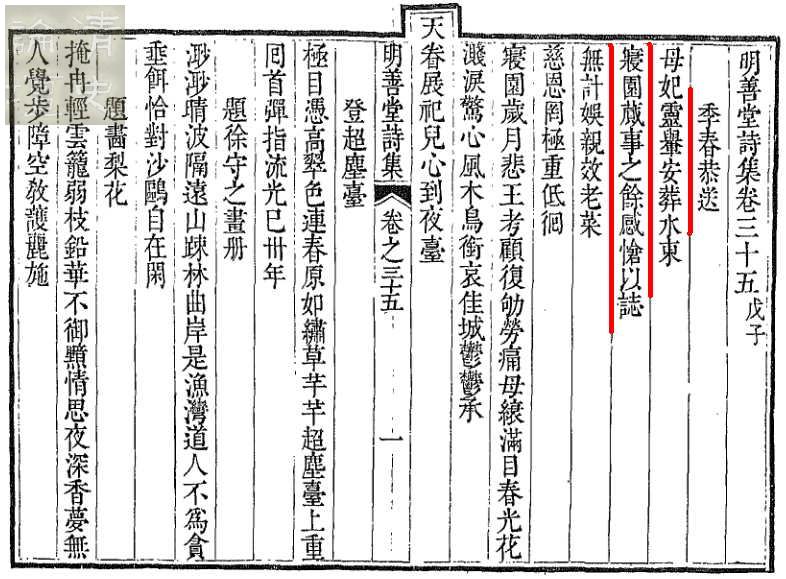 明善堂詩集卷三十五 戊子
季春恭送
母妃靈轝安葬水東
寢園蕆事之餘感愴以誌
無計娛親效老萊
慈恩罔極重低徊
寢園歲月悲王考顧復劬勞痛母縗滿目春光花
濺淚驚心風木鳥銜哀佳城鬱鬱承
天眷展祀兒心到夜臺
明善堂詩集 卷之三十五 一
登超塵臺
極目憑高翠色連春原如繡草芊芊超塵臺上重
囘首彈指流光已卅年
題徐守之畫册
渺渺晴波隔遠山踈林曲岸是漁灣道人不爲貪
垂餌恰對沙鷗自在閑
題畵梨花
掩冉輕雲籠弱枝鉛華不御黯情思夜深香夢無
人覺步障空敎護麗施
清史
論